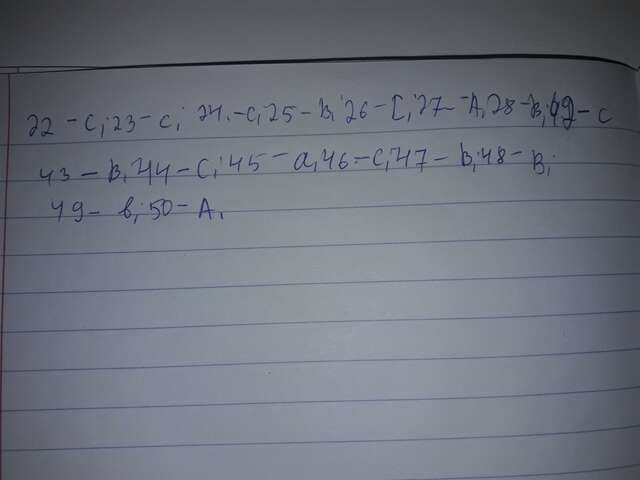 22 - C; 23 - C; 24. - C; 25 - B; 26 - C; 27 - A; 28 - B; 42 - C
43 - B; 44 - C; 45 - a; 46 - C; 47 - B; 48 - B;
49 - b; 50 - A.